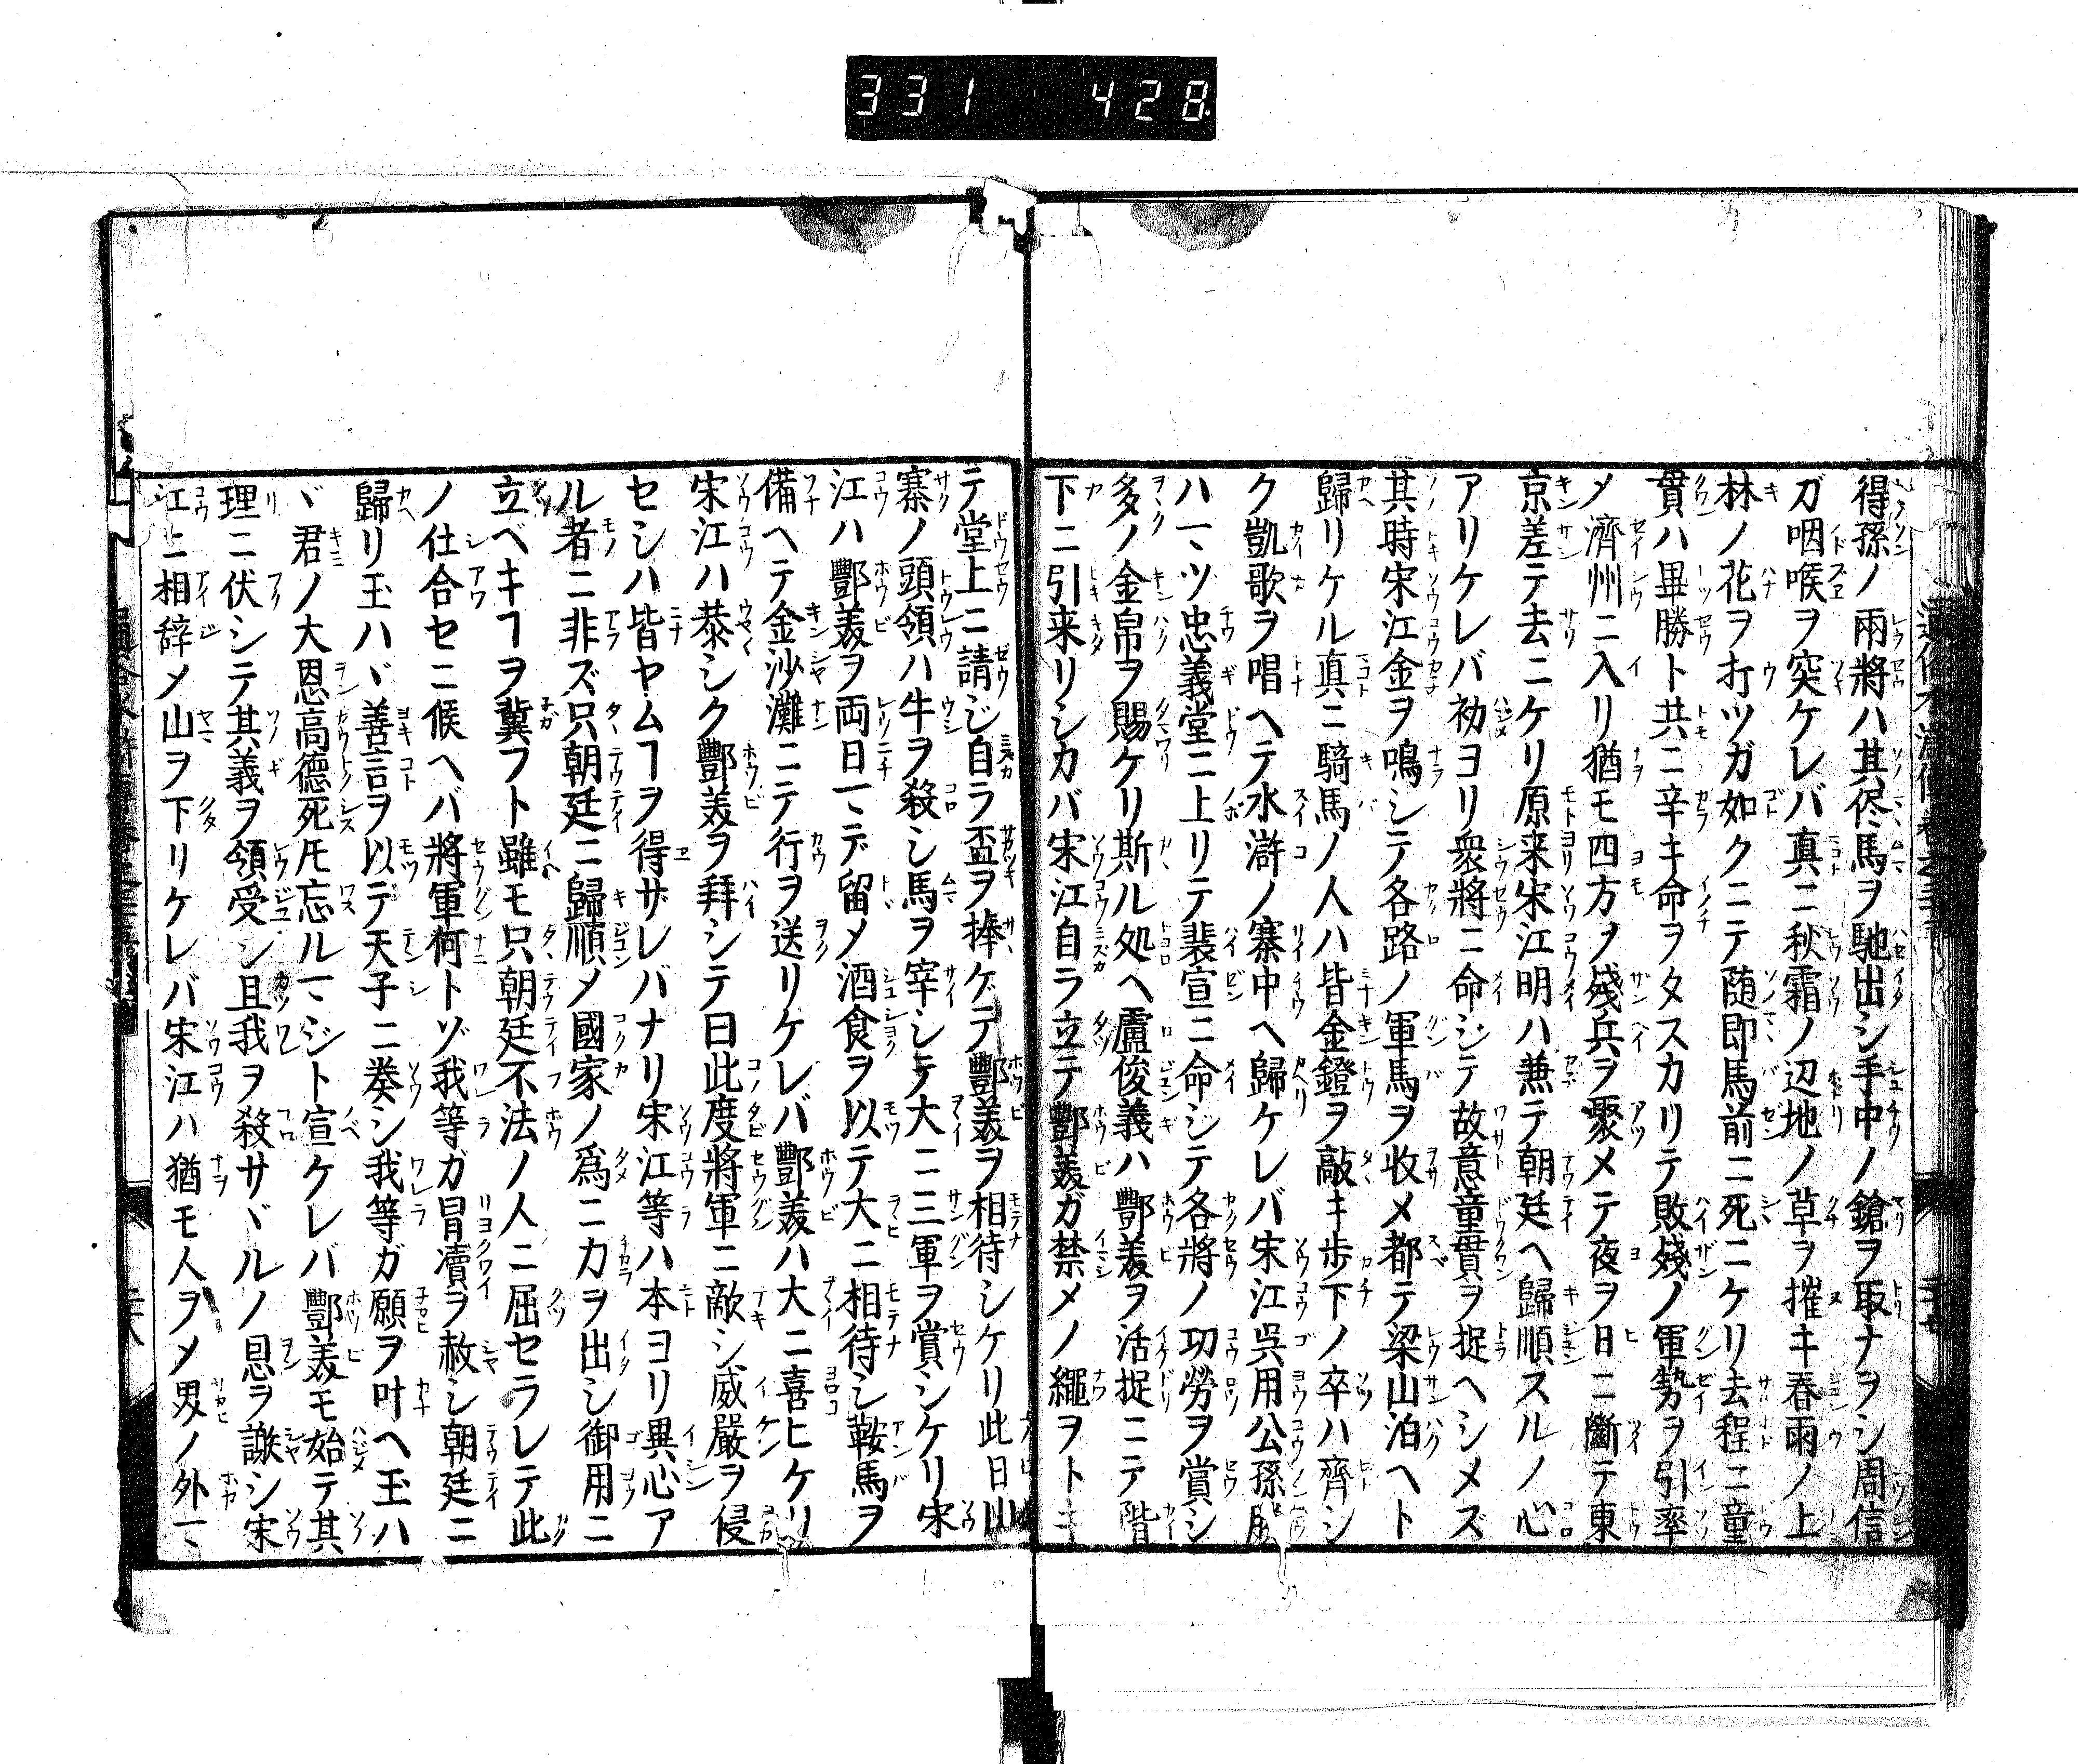 331 428
得孫ノ兩將ハ其侭馬ヲ馳出シ手中ノ鎗ヲ取ナヲシ周信
ガ咽喉ヲ突ケレバ真ニ秋霜ノ辺地ノ草ヲ摧キ春雨ノ上
林ノ花ヲ打ツガ如クニテ随即馬前ニ死ニケリ去程ニ童
貫ハ畢勝ト共ニ辛キ命ヲタスカリテ敗殘ノ軍勢ヲ引率
メ濟州ニ入リ猶モ四方ノ殘兵ヲ聚メテ夜ヲ日ニ斷テ東
京差テ去ニケリ原来宋江明ハ兼テ朝廷ヘ歸順スルノ心
アリケレバ初ヨリ衆將ニ命シテ故意童貫ヲ捉ヘシメズ
其時宋江金ヲ鳴シテ各路ノ軍馬ヲ收メ都テ梁山泊ヘト
歸リケル真ニ騎馬ノ人ハ皆金鐙ヲ敲キ歩下ノ卒ハ齊シ
ク凱歌ヲ唱ヘテ水滸ノ寨中ヘ歸ケレバ宋江呉用公孫勝
ハ一ツ忠義堂ニ上リテ裴宣ニ命ジテ各將ノ功勞ヲ賞シ
多ノ金帛ヲ賜ケリ斯ル処ヘ盧俊義ハ酆羙ヲ活捉ニテ階
下ニ引来リシカバ宋江自ラ立テ酆羙ガ禁メノ繩ヲトキ
テ堂上ニ請ジ自ラ盃ヲ捧ゲテ酆羙ヲ相待シケリ此日山
寨ノ頭領ハ牛ヲ殺シ馬ヲ宰シテ大ニ三軍ヲ賞シケリ宋
江ハ酆羙ヲ両日一デ留メ酒食ヲ以テ大ニ相待シ鞍馬ヲ
備ヘテ金沙灘ニテ行ヲ送リケレバ酆羙ハ大ニ喜ヒケリ
宋江ハ恭シク酆羙ヲ拜シテ曰此度將軍ニ敵シ威嚴ヲ侵
セシハ皆ヤムヿヲ得ザレバナリ宋江等ハ本ヨリ異心ア
ル者ニ非ズ只朝廷ニ歸順メ國家ノ爲ニ力ヲ出シ御用ニ
立ベキヿヲ冀フト雖モ只朝廷不法ノ人ニ屈セラレテ此
ノ仕合セニ候ヘバ將軍何トゾ我等ガ冐瀆ヲ赦シ朝廷ニ
歸リ玉ハヾ善言ヲ以テ天子ニ奏シ我等ガ願ヲ叶ヘ玉ハ
ヾ君ノ大恩高德死𪜈忘ル一ジト宣ケレバ酆羙モ始テ其
理ニ伏シテ其義ヲ領受シ且我ヲ殺サヾルノ恩ヲ謝シ宋
江ニ相辞メ山ヲ下リケレバ宋江ハ猶モ人ヲメ界ノ外一